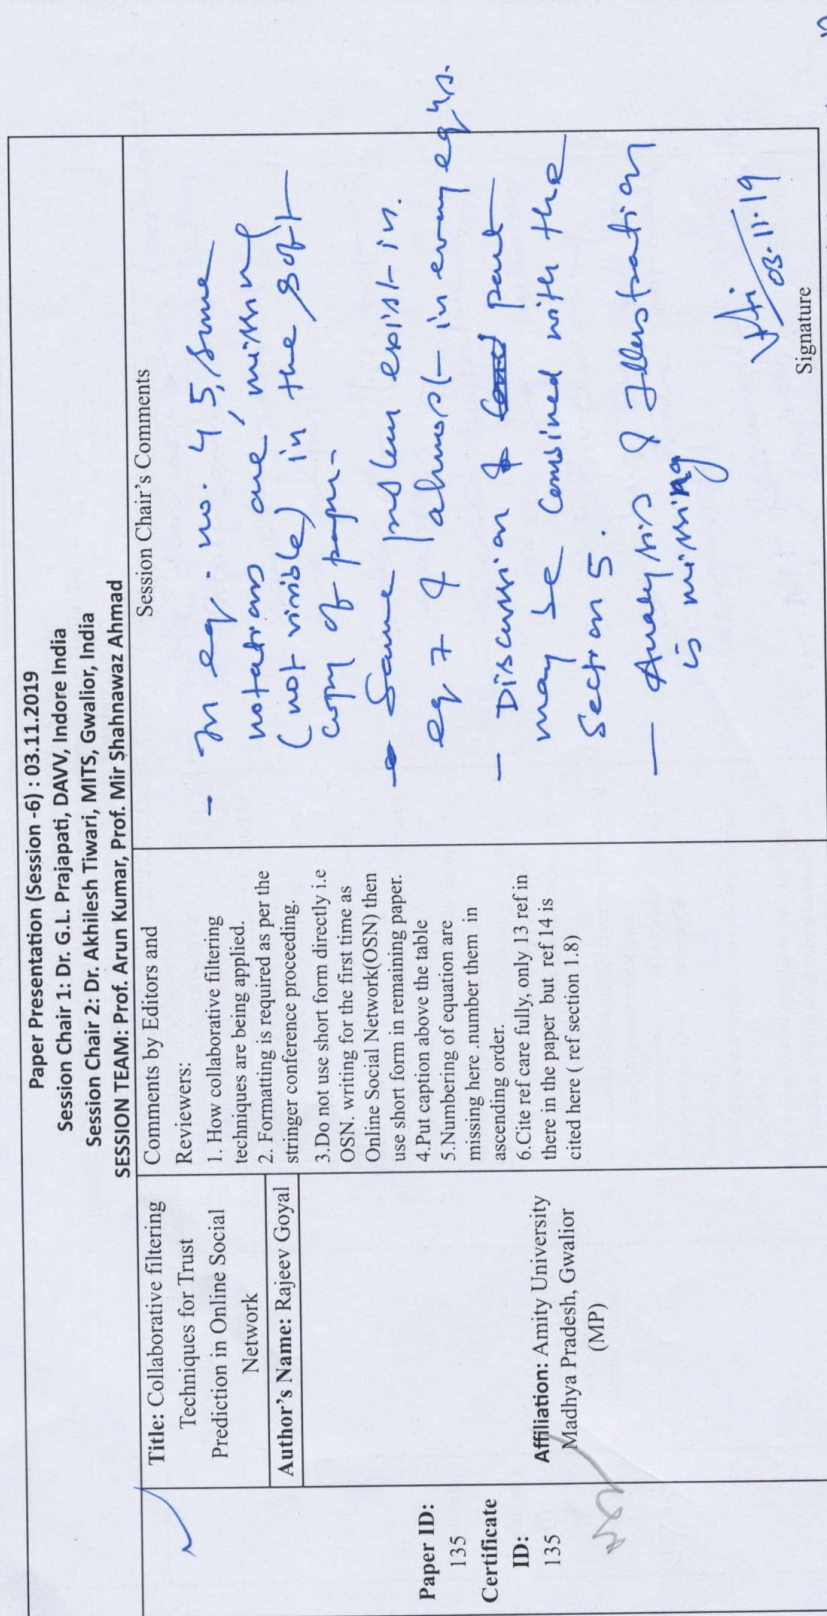 Paper Presentation (Session -6) : 03.11.2019
Session Chair 1: Dr. G.L. Prajapati, DAVV, Indore India
Session Chair 2: Dr. Akhilesh Tiwari, MITS, Gwalior, India
SESSION TEAM: Prof. Arun Kumar, Prof. Mir Shahnawaz Ahmad
Paper ID:
135
Certificate
ID:
135
Title: Collaborative filtering
Techniques for Trust
Prediction in Online Social
Network
Author's Name: Rajeev Goyal
Affiliation: Amity University
Madhya Pradesh, Gwalior
(MP)
Comments by Editors and
Reviewers:
1. How collaborative filtering
techniques are being applied.
2. Formatting is required as per the
stringer conference proceeding.
3.Do not use short form directly i.e
OSN. writing for the first time as
Online Social Network(OSN) then
use short form in remaining paper.
4.Put caption above the table
5.Numbering of equation are
missing here .number them in
ascending order.
6.Cite ref care fully, only 13 ref in
there in the paper but ref 14 is
cited here ( ref section 1.8)
Session Chair's Comments
- In eq. no. 4, 5, some
notations are missing
(not visible) in the soft
copy of paper.
Same problem exist in
eq 7 & almost in every eqns.
- Discussion & part
may be combined with the
Section 5.
- Analysis & Illustration
is missing
03.11.19
Signature